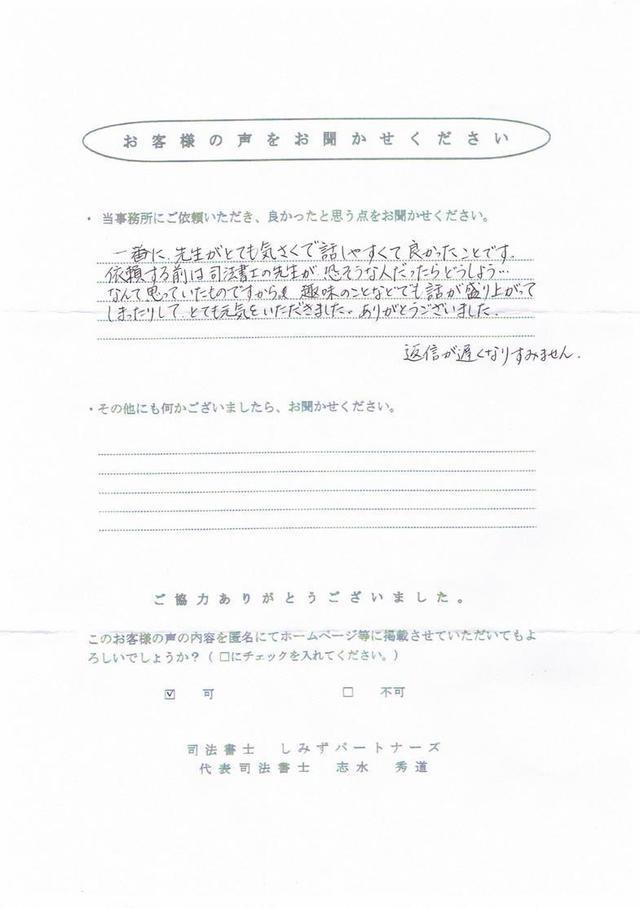 お客様の声をお聞かせください
・当事務所にご依頼いただき、良かったと思う点をお聞かせください。
一番に、先生がとても気さくで話しやすくて良かったことです。
依頼する前は司法書士の先生が恐そうな人だったらどうしよう…
なんて思っていたものですから。趣味のことなどでも話が盛り上がって
しまったりして、とても元気をいただきました。ありがとうございました。
返信が遅くなりすみません。
・その他にも何かございましたら、お聞かせください。
ご協力ありがとうございました。
このお客様の声の内容を匿名にてホームページ等に掲載させていただいてもよ
ろしいでしょうか？（ □にチェックを入れてください。）
☑ 可 □ 不可
司法書士 しみずパートナーズ
代表司法書士 志水 秀道